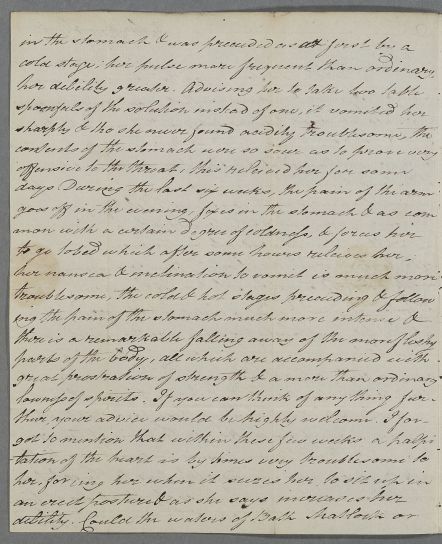 in the stomach & was preceeded as att first by a
cold stage: her pulse more frequent than ordinary,
her debility greater. Advising her to take two table
spoonfuls of the solution instead of one, it vomited her
sharply & tho she never found acidity troublesome, the
contents of the stomach were so sour as to prove very
offensive to the throat, this relieved her for some
days During the last six weeks, the pain of the arm
goes off in the evening, fixes in the stomach & as com
mon with a certain degree of coldness, & forces her
to go to bed which after some hours relieves her.
her nausea & inclination to vomit is much more
troublesome, the cold & hot stages preceeding & follow
ing the pain of the stomach much more intense &
there is a remarkable falling away of the more fleshy
parts of the body, all which are accompanied with
great prostration of strength & a more than ordinary
lowness of spirits. If you can think of any thing fur-
ther your advice would be highly welcome. I for-
got to mention that within these few weeks a palpi
tation of the heart is by times very troublesome to
her, forcing her when it seizes her to sit up in
an erect posture & as she says increases her
debility. Could the waters of Bath Matlock or